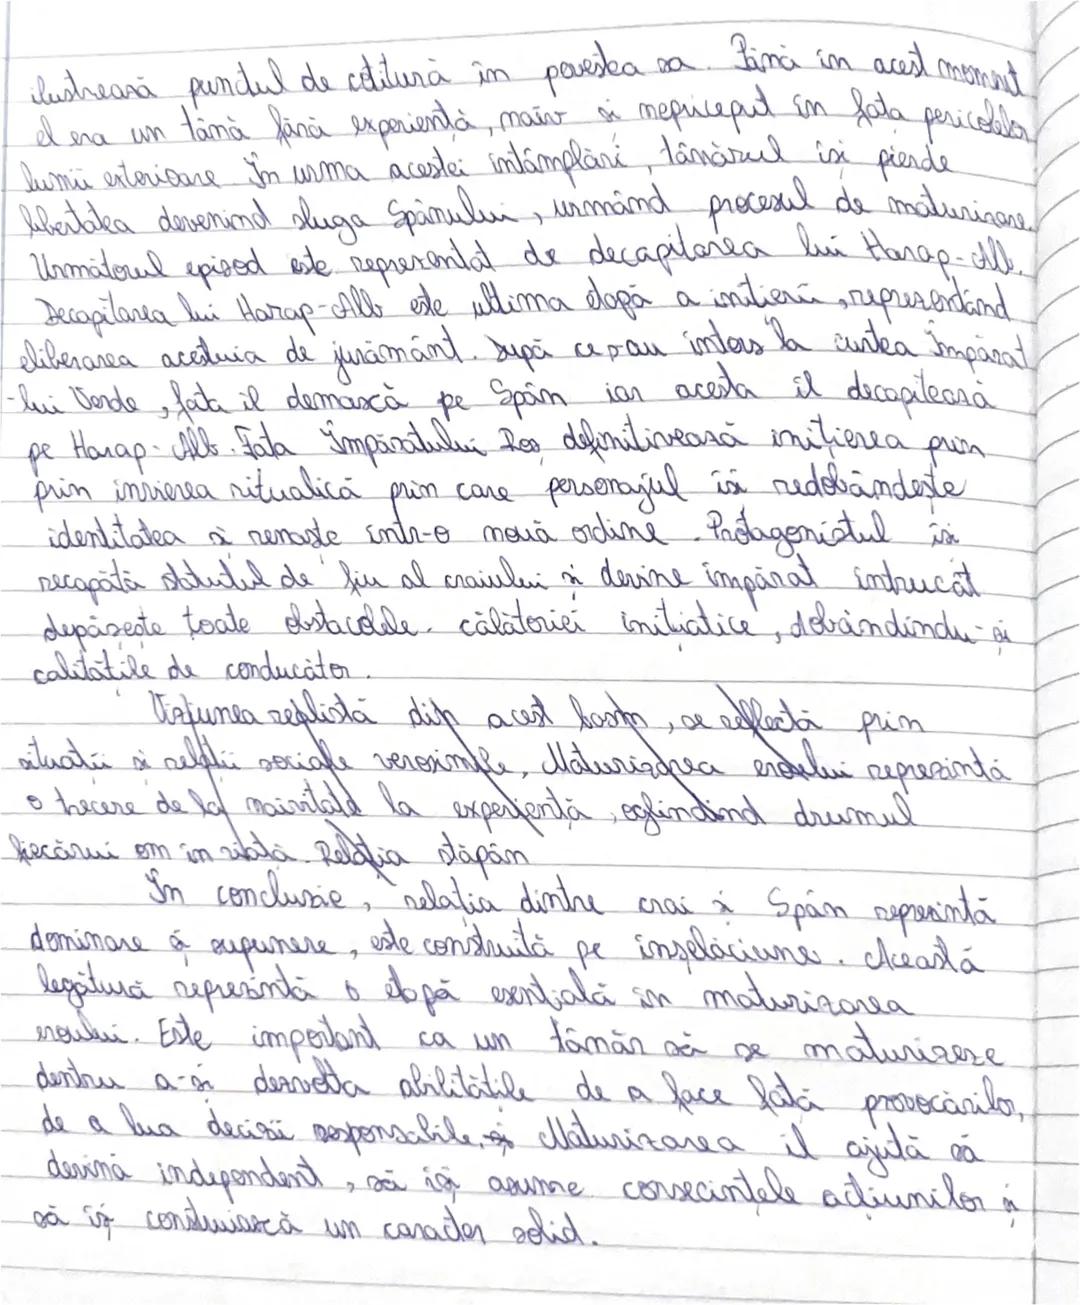 ilustrează punctul de cotitură în povestea sa. Până în acest moment
el era un tână fără experiență, naiv și nepriceput în fața pericolelor
lumii exterioare. În urma acestei întâmplări, tânărul își pierde
libertatea devenind sluga Spânului, urmând procesul de maturizare.
Următorul episod este reprezentat de decapitarea lui Harap-Alb.
Decapitarea lui Harap-Alb este ultima etapă a inițierii, reprezentând
eliberarea acestuia de jurământ. După ce s-au întors la curtea Împărat
-lui Verde, fata îl demască pe Spân iar acesta îl decapitează
pe Harap-Alb. Fata Împăratului Roș definitivează inițierea prin
prin învierea ritualică prin care personajul își redobândește
identitatea și renaște într-o nouă ordine. Protagonistul își
recapătă statutul de fiu al craiului și devine împărat întrucât
depășește toate obstacolele călătoriei inițiatice, dobândindu-și
calitățile de conducător.
Viziunea realistă din acest basm, se reflectă prin
situații și relații sociale verosimile, Maturizarea eroului reprezintă
o trecere de la naivitate la experiență, oglindind drumul
fiecărui om în viață. Relația stăpân
În concluzie, relația dintre crai și Spân reprezintă
dominare și supunere, este construită pe înșelăciune. Această
legătură reprezintă o etapă esențială în maturizarea
eroului. Este important ca un tânăr să se maturizeze
dentru a-și dezvolta abilitățile de a face față provocărilor,
de a lua decizii responsabile, și Maturizarea îl ajută să
devină independent, să își asume consecințele acțiunilor și
să își construiască un caracter solid.